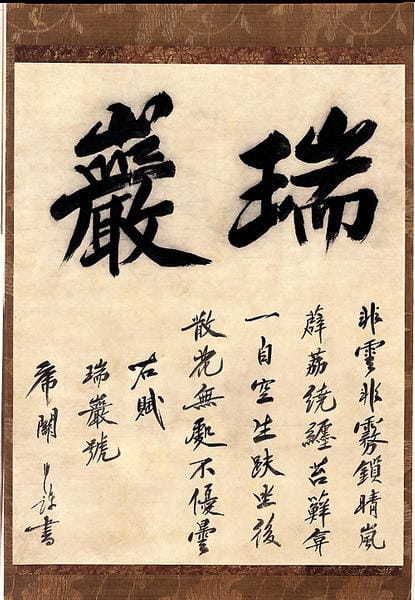 瑞巖
非雲非霧鎖晴嵐
薜荔繞纏苔蘚
一自空生趺坐後
散花無處不優曇
右賦
瑞巖號
虎關師錬書